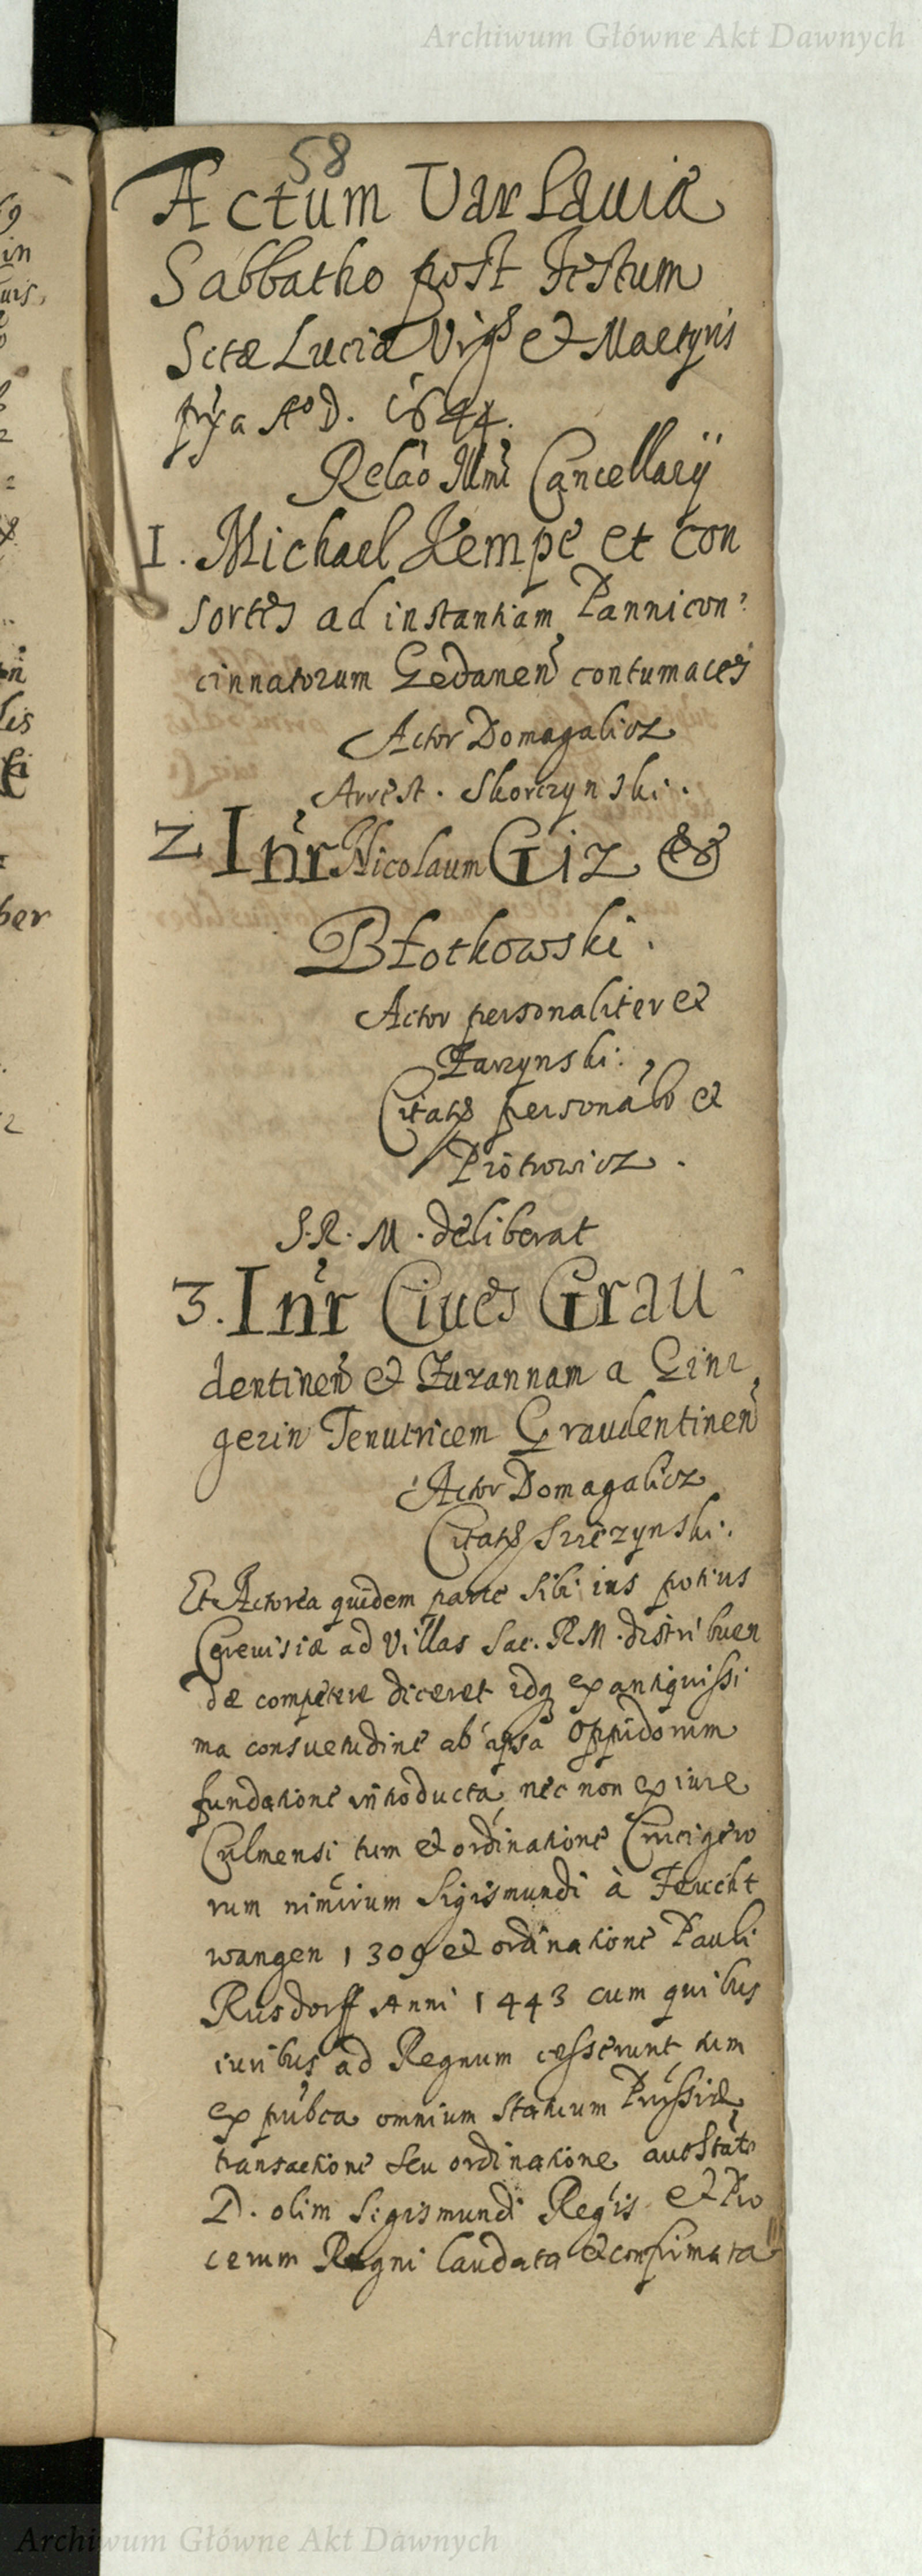 Archiwum Główne Akt Dawnych
58
Actum Varsauiæ
Sabbatho post Festum
Sctæ Luciæ Virgs et Martyris
pxya Ao D. 1644.
Relão Illmi Cancellarij
1. Michael Kempe et con
sortes ad instantiam Pannicon:
cinnatorum Gedanen contumaces
Actor Domagalicz
Arrest. Skorczynski.
2 Inr Nicolaum Giz &
Błotkowski.
Actor personaliter et
Zarzynski.
Citats personabo et
Piotrowicz.
S. R. M. deliberat
3. Inr Ciues Grau
dentinen et Zuzannam a
gerin Tenutricem Graudentinen
Actor Domagalicz
Citats
Et Actorea quidem parte sibi ius potius
Cereuisiæ ad Villas Sac. R M. distribuen
dæ competere diceret idq ex antiquissi
ma consuetudine ab ipsa Oppidorum
fundatione introducta, nec non ex iure
Culmensi tum et ordinatione Crucigero
rum nimirum Sigismundi à Feucht
wangen 1309 et ordinatione Pauli
Rusdorff Anni 1443 cum quibus
iuribus ad Regnum cesserunt, tum
ex pubca omnium Statuum Prussiæ
transactione seu ordinatione auctstate
D. olim Sigismundi Regis et Pro
cerum Regni laudata et confirmata
Archiwum Główne Akt Dawnych